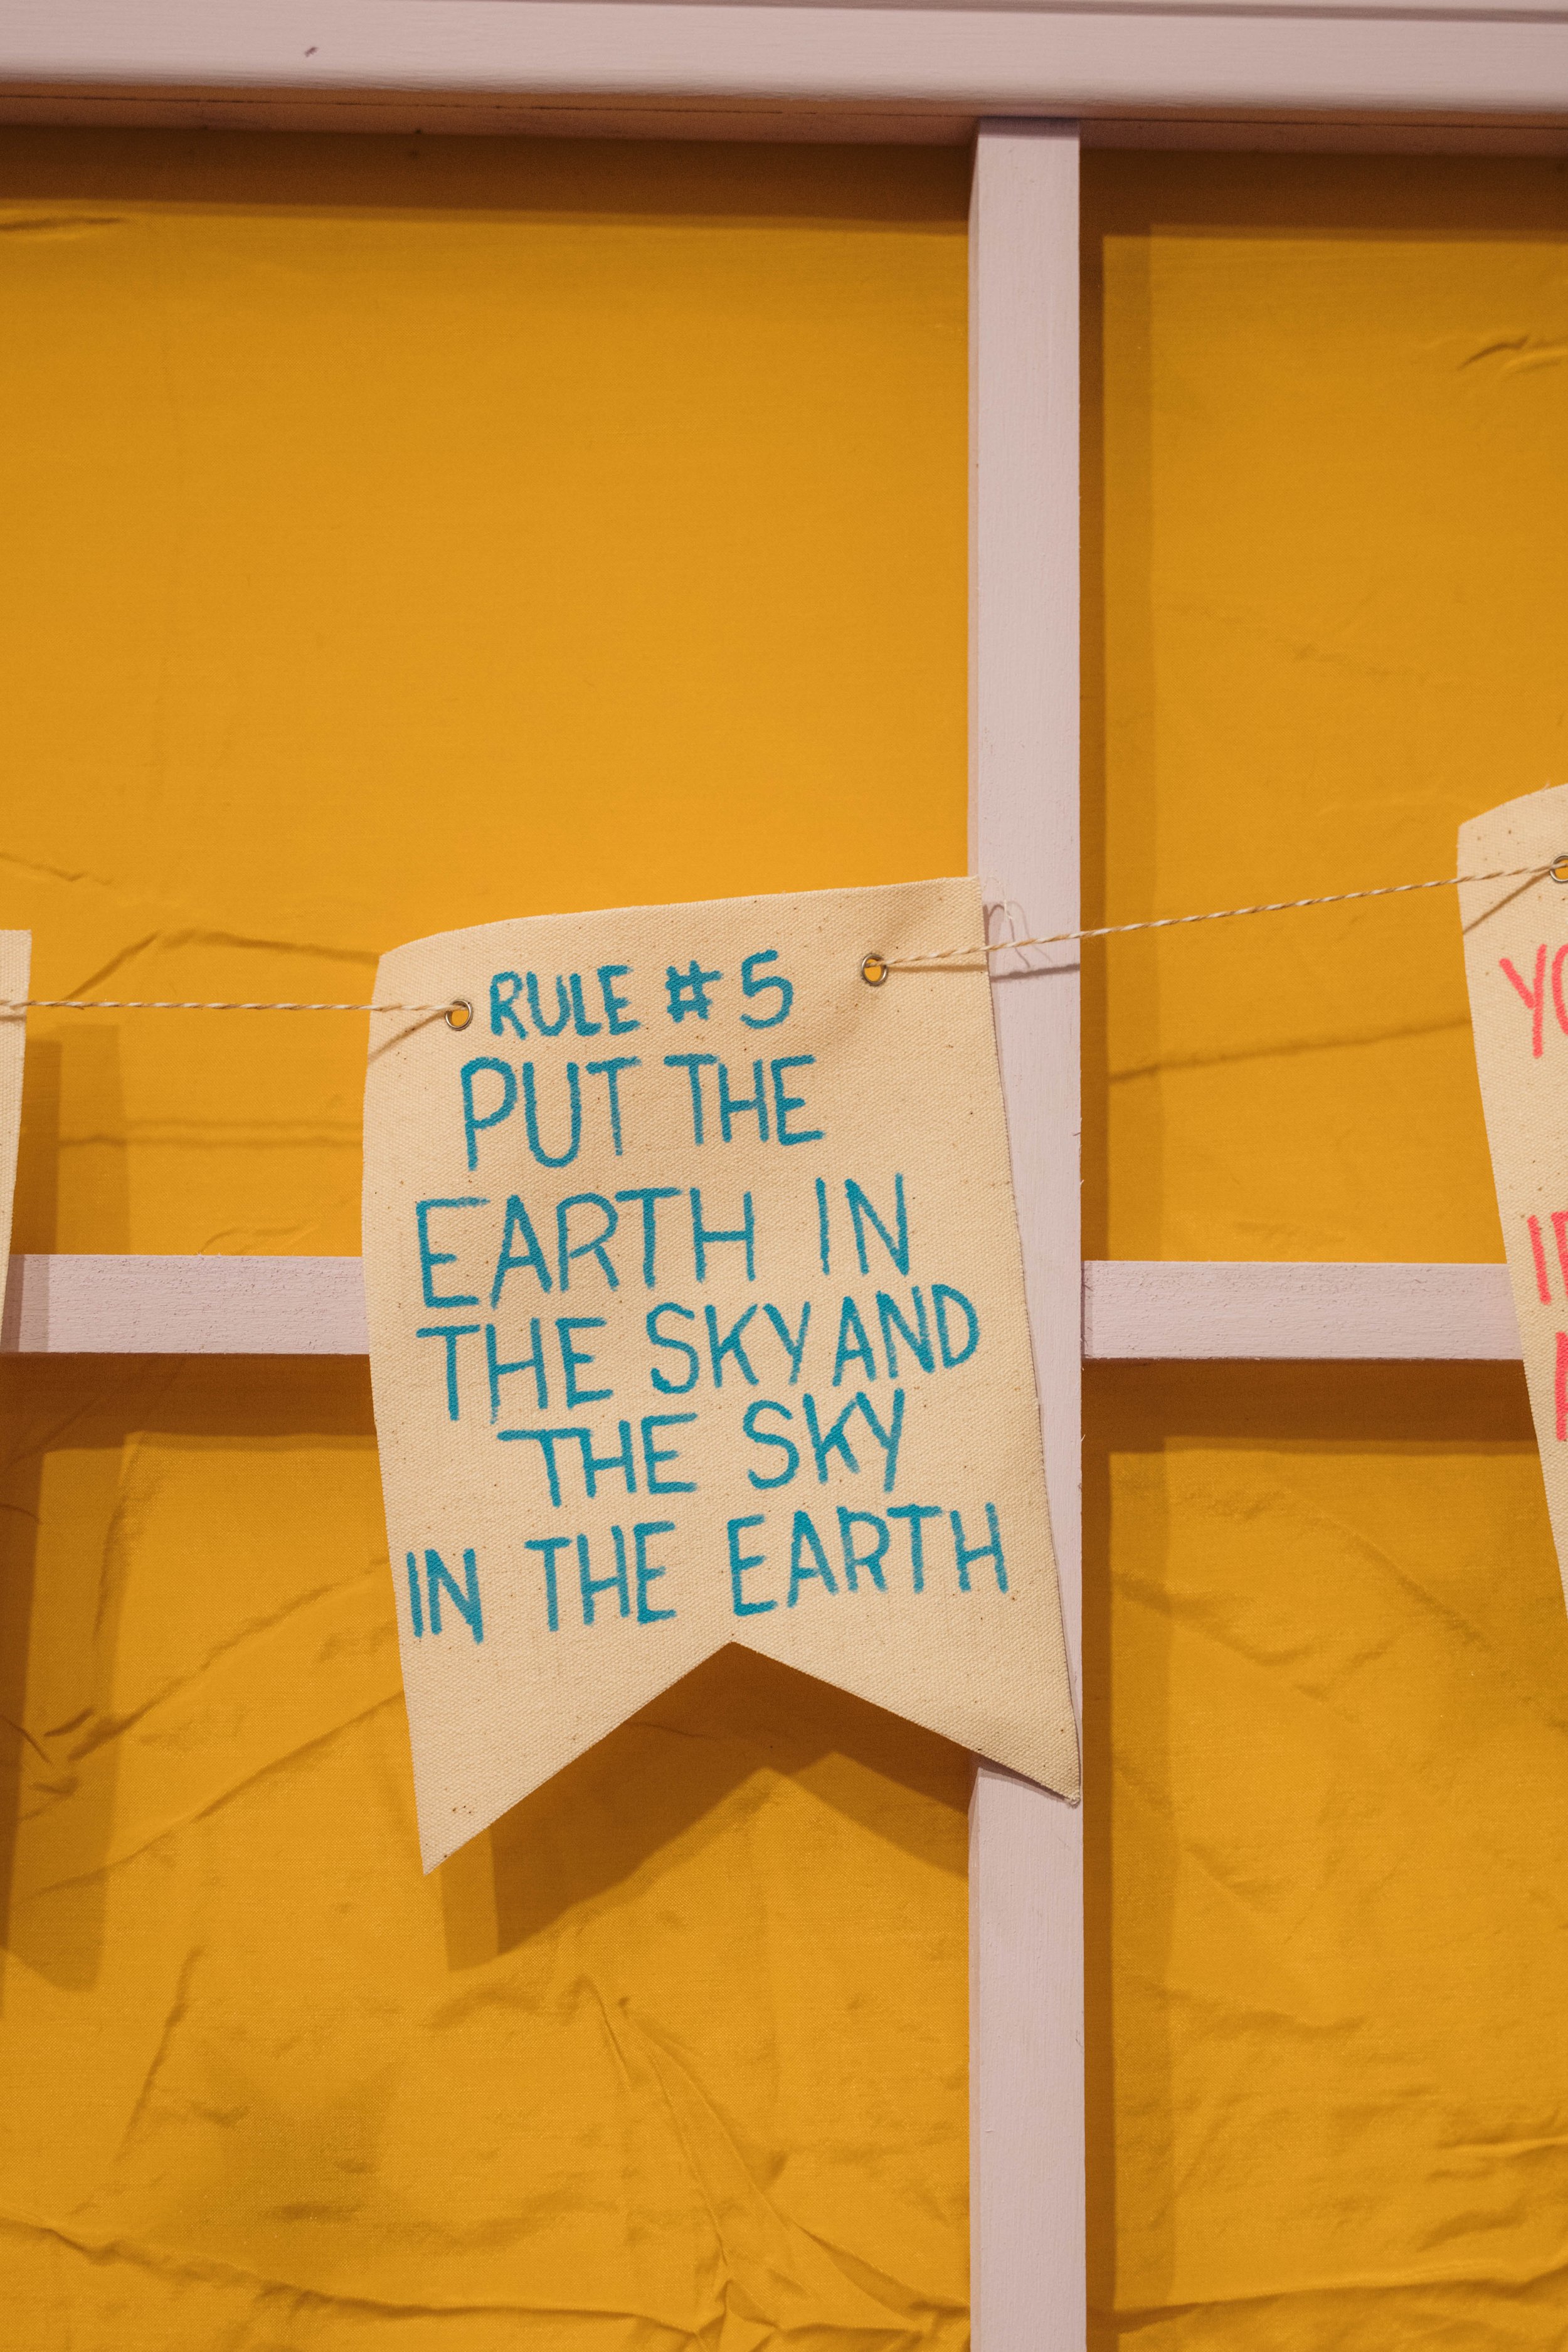 RULE #5
PUT THE
EARTH IN
THE SKY AND
THE SKY
IN THE EARTH